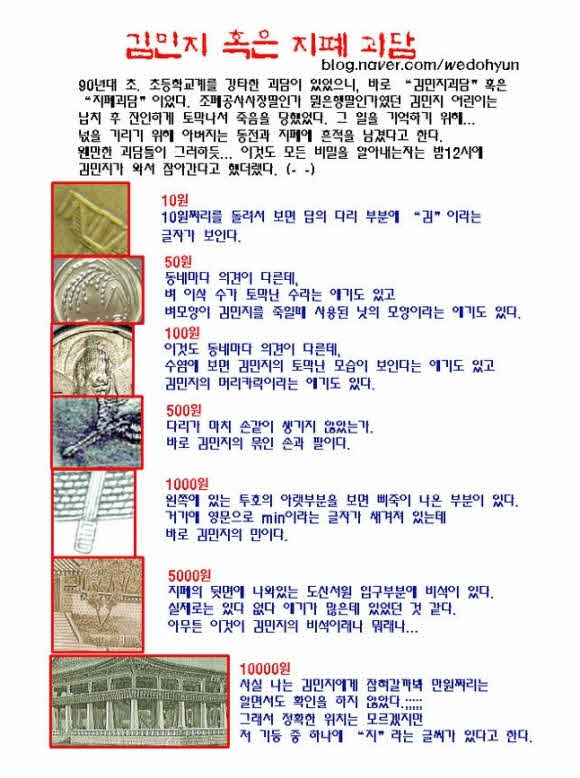 김민지 혹은 지폐 괴담
blog.naver.com/wedohyun
90년대 초. 초등학교계를 강타한 괴담이 있었으니, 바로 “김민지괴담” 혹은
“지폐괴담” 이었다. 조폐공사사장딸인가 뭔은행딸인가였던 김민지 어린이는
납치 후 잔인하게 토막나서 죽음을 당했었다. 그 일을 기억하기 위해...
넋을 기리기 위해 아버지는 동전과 지폐에 흔적을 남겼다고 한다.
웬만한 괴담들이 그러하듯... 이것도 모든 비밀을 알아내는자는 밤12시에
김민지가 와서 잡아간다고 했더랬다. (- -)
10원
10원짜리를 돌려서 보면 탑의 다리 부분에 “김” 이라는
글자가 보인다.
50원
동네마다 의견이 다른데,
벼 이삭 수가 토막난 수라는 얘기도 있고
벼모양이 김민지를 죽일때 사용된 낫의 모양이라는 얘기도 있다.
100원
이것도 동네마다 의견이 다른데,
수염에 보면 김민지의 토막난 모습이 보인다는 얘기도 있고
김민지의 머리카락이라는 얘기도 있다.
500원
다리가 마치 손같이 생기지 않았는가.
바로 김민지의 묶인 손과 팔이다.
1000원
왼쪽에 있는 투호의 아랫부분을 보면 삐죽이 나온 부분이 있다.
거기에 영문으로 min이라는 글자가 새겨져 있는데
바로 김민지의 민이다.
5000원
지폐의 뒷면에 나와있는 도산서원 입구부분에 비석이 있다.
실제로는 있다 없다 얘기가 많은데 있었던 것 같다.
아무튼 이것이 김민지의 비석이래나 뭐래나...
10000원
사실 나는 김민지에게 잡혀갈까봐 만원짜리는
알면서도 확인을 하지 않았다.;;;;;
그래서 정확한 위치는 모르겠지만
저 기둥 중 하나에 “지” 라는 글씨가 있다고 한다.